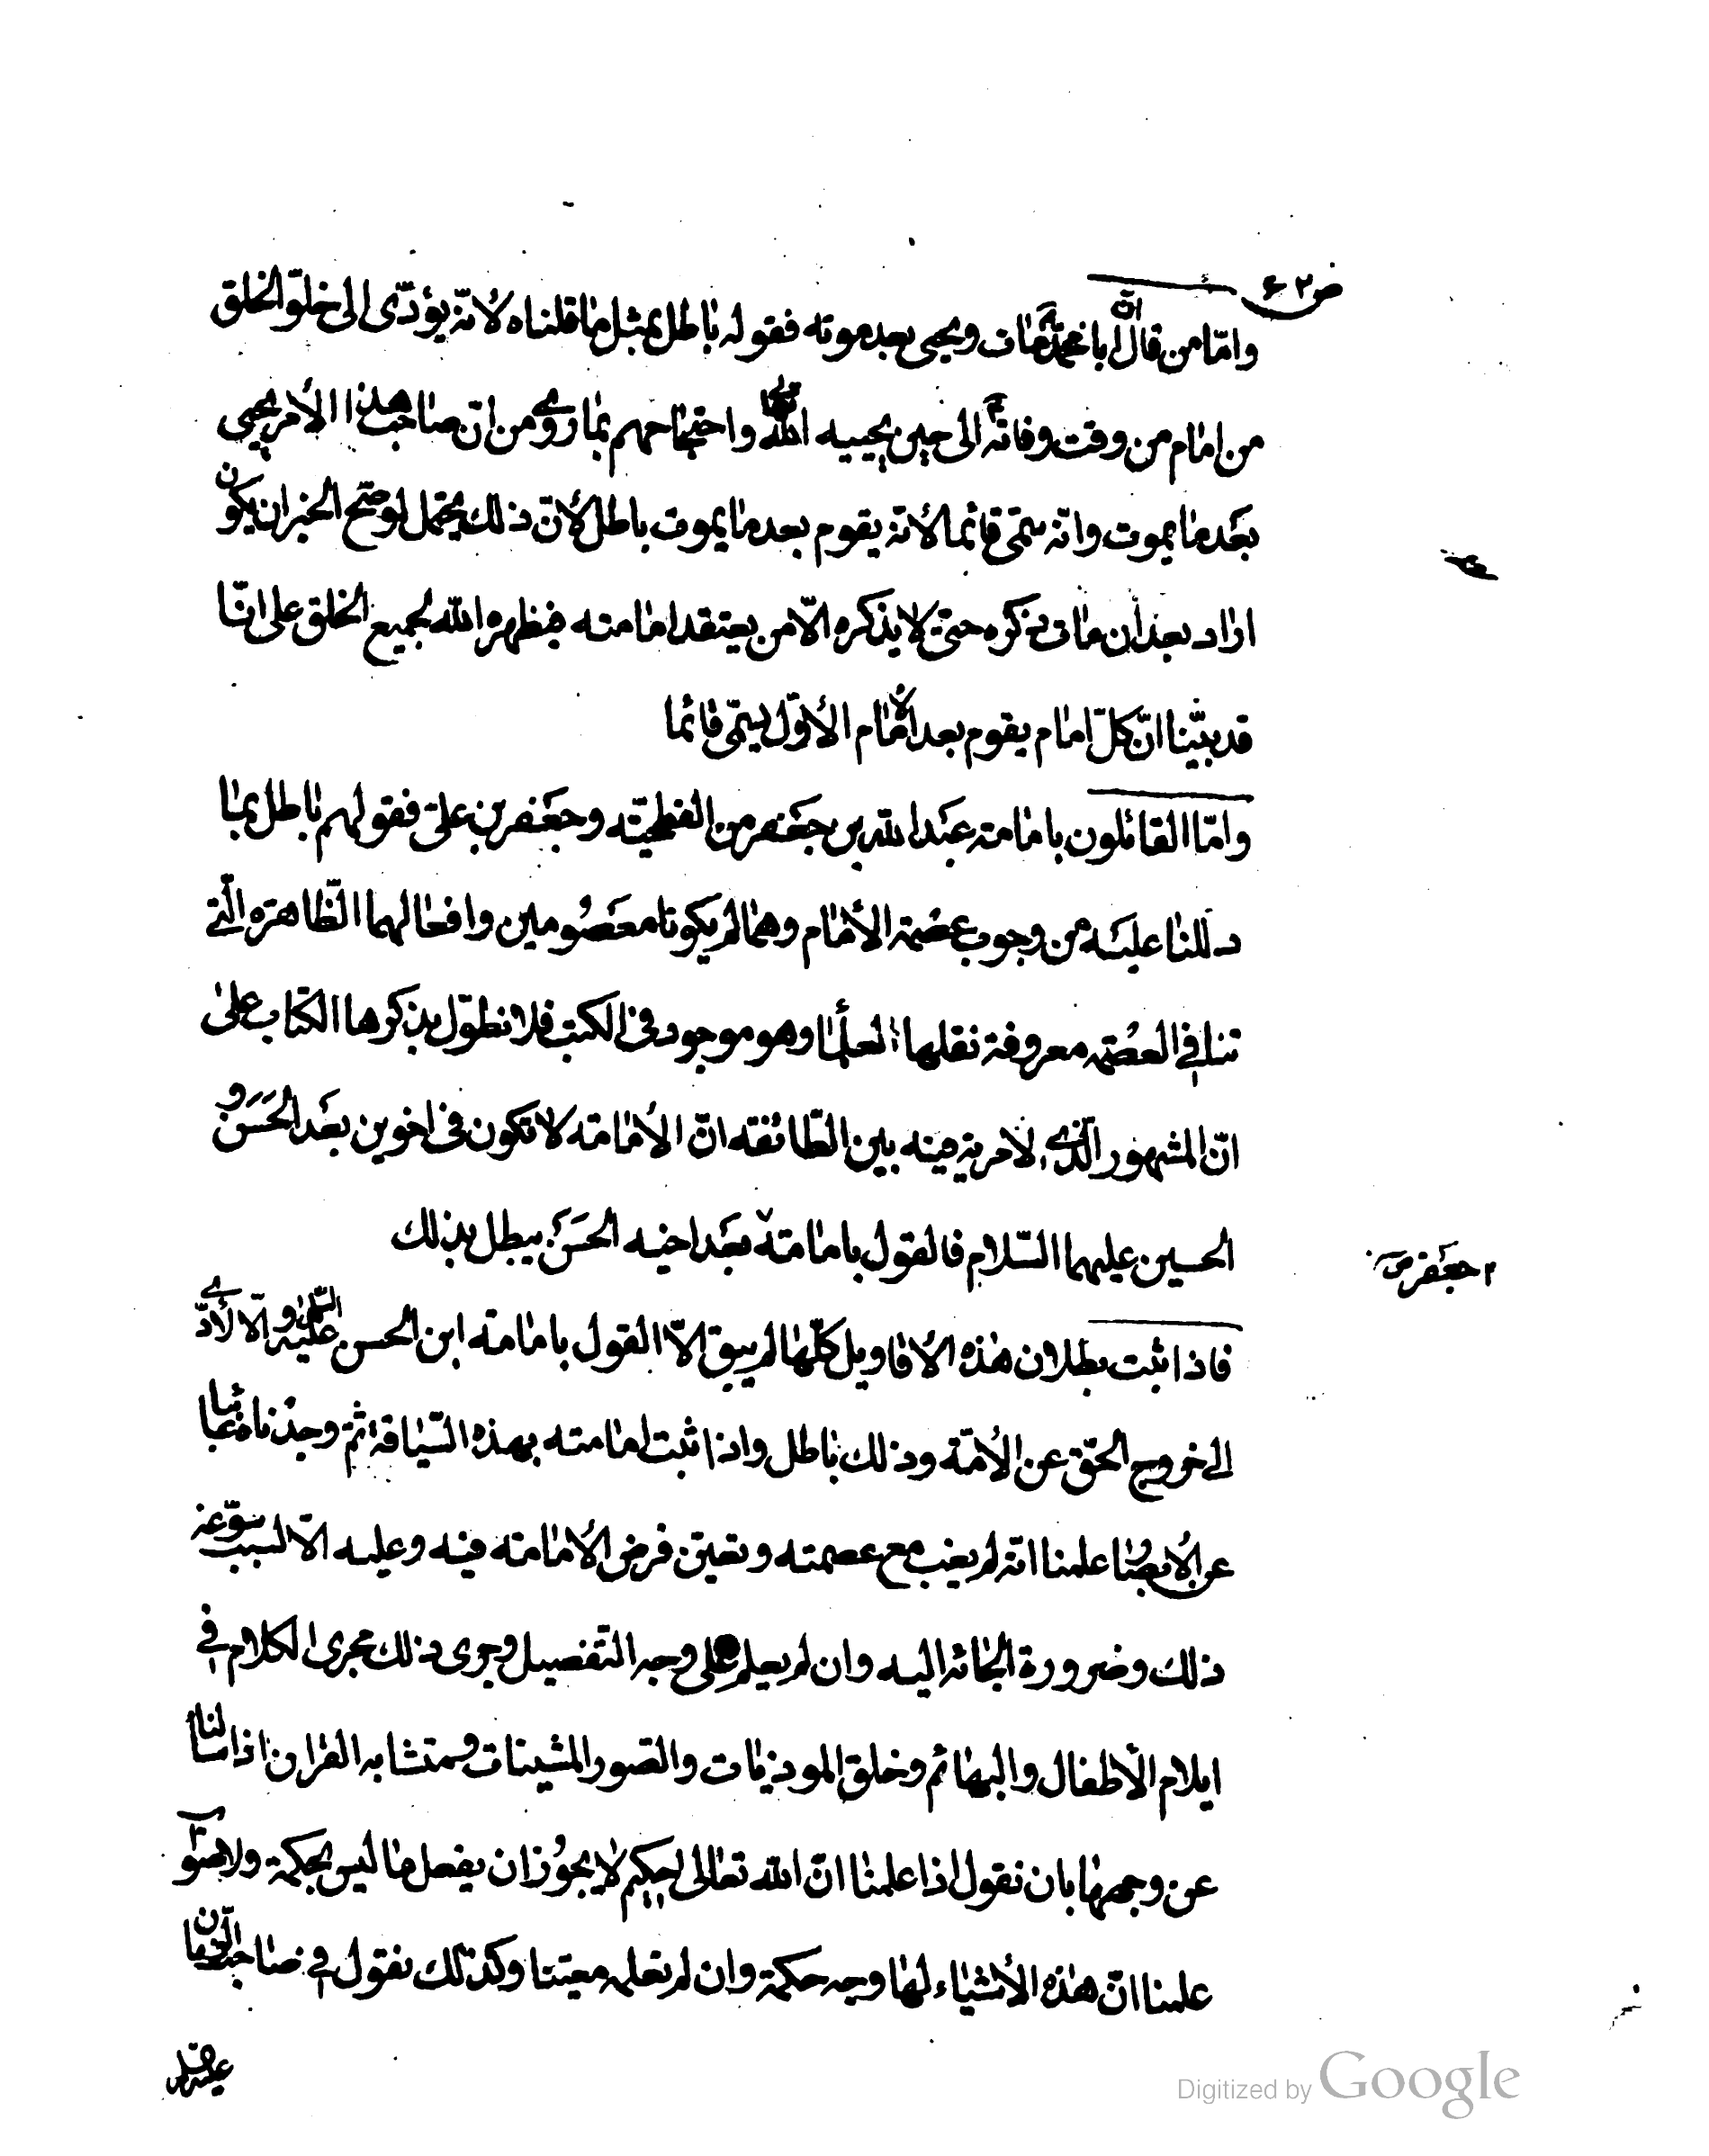 ص ٤٢
وامّا من قال انّ ابا محمّد مات ويحيى بعد موته فقوله باطل بمثل ما قلناه لانّه يؤدّى الى خلوّ الخلق
من امام من وقت وفاته الى حين يحييه الله واحتجاجهم بما روى من انّ صاحب هذا الأمر يحيى
بعد ما يموت وانّه سمّى قائما لأنّه يقوم بعد ما يموت باطل لأنّ ذلك يحتمل لو صحّ الخبر ان يكون
اراد بعد ان مات ذكره حتّى لا يذكره الّا من يعتقد امامته فيظهره الله لجميع الخلق على انّنا
قد بيّنا انّ كلّ امام يقوم بعد الامام الأوّل يسمّى قائما
وامّا القائلون بامامة عبد الله بن جعفر من الفطحيّة وجعفر بن علىّ فقولهم باطل بما
دللنا عليه من وجوب عصمة الأمام وهما لم يكونا معصومين وافعالهما الظّاهرة الّتى
تنافى العصمة معروفة نقلها العلماء وهو موجود فى الكتب فلا نطوّل بذكرها الكتاب على
انّ المشهور الّذى لا مرية فيه بين الطّائفة انّ الأمامة لا تكون فى اخوين بعد الحسن و
الحسين عليهما السّلام فالقول بامامة بعد اخيه الحسن يبطل بذلك
جعفر ص
فاذا ثبت بطلان هذه الأقاويل كلّها لم يبق الّا القول بامامة ابن الحسن عليه السّلام والّا لأدّى
الى خروج الحقّ عن الأمّة وذلك باطل واذا ثبت امامته بهذه السّياقة ثمّ وجدناه غائبا
عن الأبصار علمنا انّه لم يغب مع عصمته وتعيّن فرض الأمامة فيه وعليه الّا لسبب سوّغه
ذلك وضرورة الجأته اليه وان لم يعلم على وجه التّفصيل وجرى ذلك مجرى الكلام فى
ايلام الأطفال والبهائم وخلق الموذيات والصّور المشينات ومتشابه القرآن اذا سألنا
عن وجهها بان نقول اذا علمنا انّ الله تعالى حكيم لا يجوز ان يفعل ما ليس بحكمة ولا صواب
علمنا انّ هذه الأشياء لها وجه حكمة وان لم نعلمه معيّنا وكذلك نقول فى صاحب الزّمان
عليه السلم
Digitized by Google